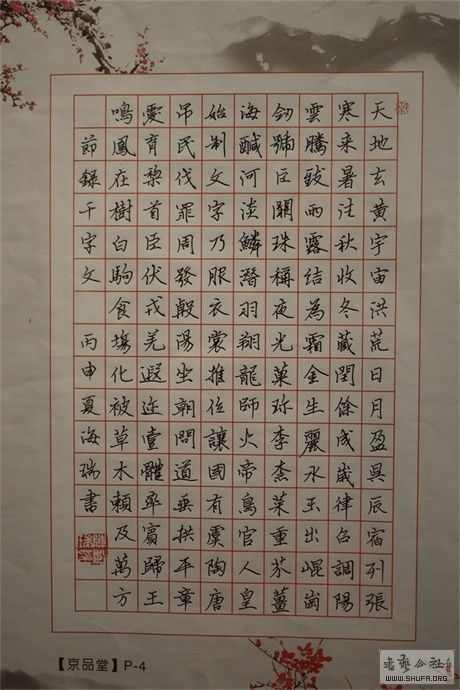 天地玄黃宇宙洪荒日月盈昃辰宿列張
寒来暑往秋收冬藏閏餘成歲律召調陽
雲騰致雨露結為霜金生麗水玉出崐崗
劒號巨闕珠稱夜光菓珍李柰菜重芥薑
海鹹河淡鱗潛羽翔龍師火帝鳥官人皇
始制文字乃服衣裳推位讓國有虞陶唐
吊民伐罪周發殷湯坐朝問道垂拱平章
愛育黎首臣伏戎羌遐迩壹體率賓歸王
鳴鳳在樹白駒食場化被草木賴及萬方
節録千字文 丙申夏海瑞書
【京品堂】P-4
书艺公社
WWW.SHUFA.ORG